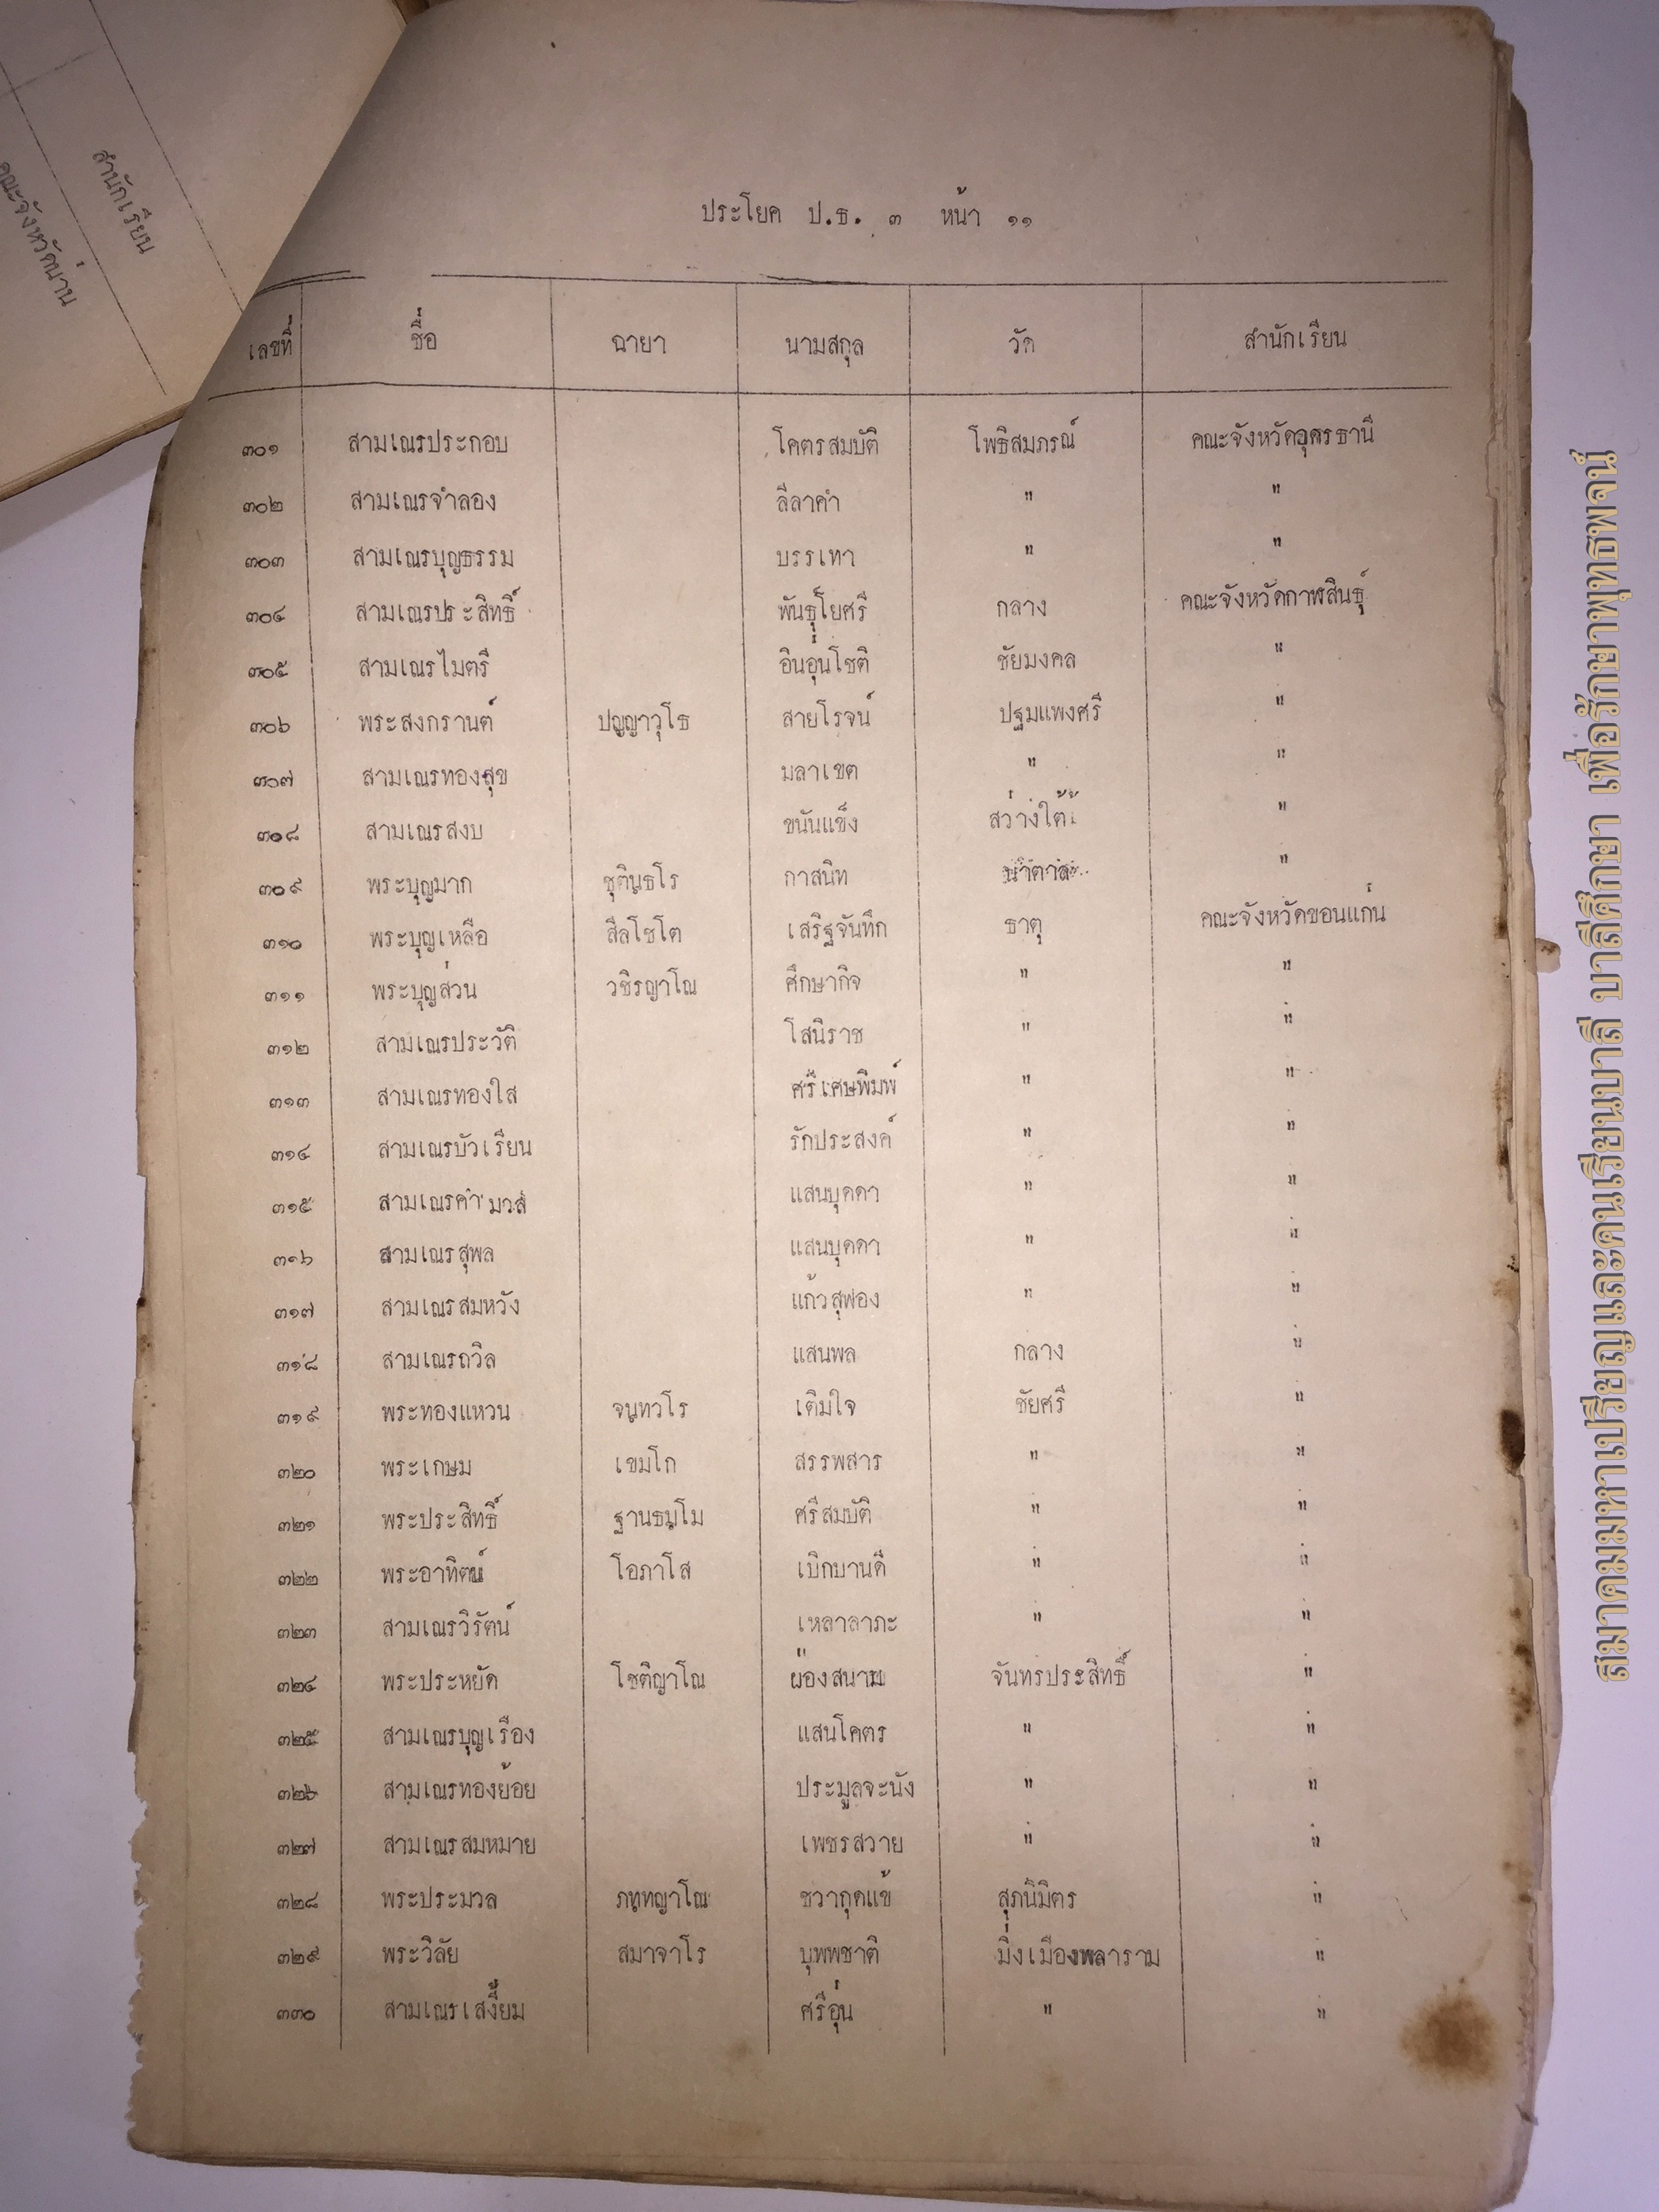 สำนักเรียน
คณะจังหวัดน่าน
ประโยค ป.ธ. ๓ หน้า ๑๑
เลขที่ ชื่อ ฉายา นามสกุล วัด สำนักเรียน
๓๐๑ สามเณรประกอบ โคตรสมบัติ โพธิสมภรณ์ คณะจังหวัดอุดรธานี
๓๐๒ สามเณรจำลอง ลีลาคำ " "
๓๐๓ สามเณรบุญธรรม บรรเทา " "
๓๐๔ สามเณรประสิทธิ์ พันธุ์โยศรี กลาง คณะจังหวัดกาฬสินธุ์
๓๐๕ สามเณรไมตรี อินอุ่นโชติ ชัยมงคล "
๓๐๖ พระสงกรานต์ ปญฺญาวุโธ สายโรจน์ ปฐมแพงศรี "
๓๐๗ สามเณรทองสุข มลาเขต " "
๓๐๘ สามเณรสงบ ขนันแข็ง สว่างใต้ "
๓๐๙ พระบุญมาก ชุตินฺธโร กาสนิท "
๓๑๐ พระบุญเหลือ สีลโชโต เสริฐจันทึก ธาตุ คณะจังหวัดขอนแก่น
๓๑๑ พระบุญส่วน วชิรญาโณ ศึกษากิจ " "
๓๑๒ สามเณรประวัติ โสนิราช " "
๓๑๓ สามเณรทองใส ศรีเศษพิมพ์ " "
๓๑๔ สามเณรบัวเรียน รักประสงค์ " "
๓๑๕ สามเณรคำมวส์ แสนบุดดา " "
๓๑๖ สามเณรสุพล แสนบุดดา " "
๓๑๗ สามเณรสมหวัง แก้วสุฟอง " "
๓๑๘ สามเณรถวิล แสนพล กลาง "
๓๑๙ พระทองแหวน จนฺทวโร เติมใจ ชัยศรี "
๓๒๐ พระเกษม เขมโก สรรพสาร " "
๓๒๑ พระประสิทธิ์ ฐานธมฺโม ศรีสมบัติ " "
๓๒๒ พระอาทิตย์ โอภาโส เบิกบานดี " "
๓๒๓ สามเณรวิรัตน์ เหลาลาภะ " "
๓๒๔ พระประหยัด โชติญาโณ ผ่องสนาม จันทรประสิทธิ์ "
๓๒๕ สามเณรบุญเรือง แสนโคตร " "
๓๒๖ สามเณรทองย้อย ประมูลจะนัง " "
๓๒๗ สามเณรสมหมาย เพชรสวาย " "
๓๒๘ พระประมวล ภทฺทญาโณ ชวากุดแข้ สุภนิมิตร "
๓๒๙ พระวิลัย สมาจาโร บุพพชาติ มิ่งเมืองพลาราม "
๓๓๐ สามเณรเสงี้ยม ศรีอุ่น " "
สมาคมมหาเปรียญและคนเรียนบาลี บาลีศึกษา เพื่อรักษาพุทธพจน์